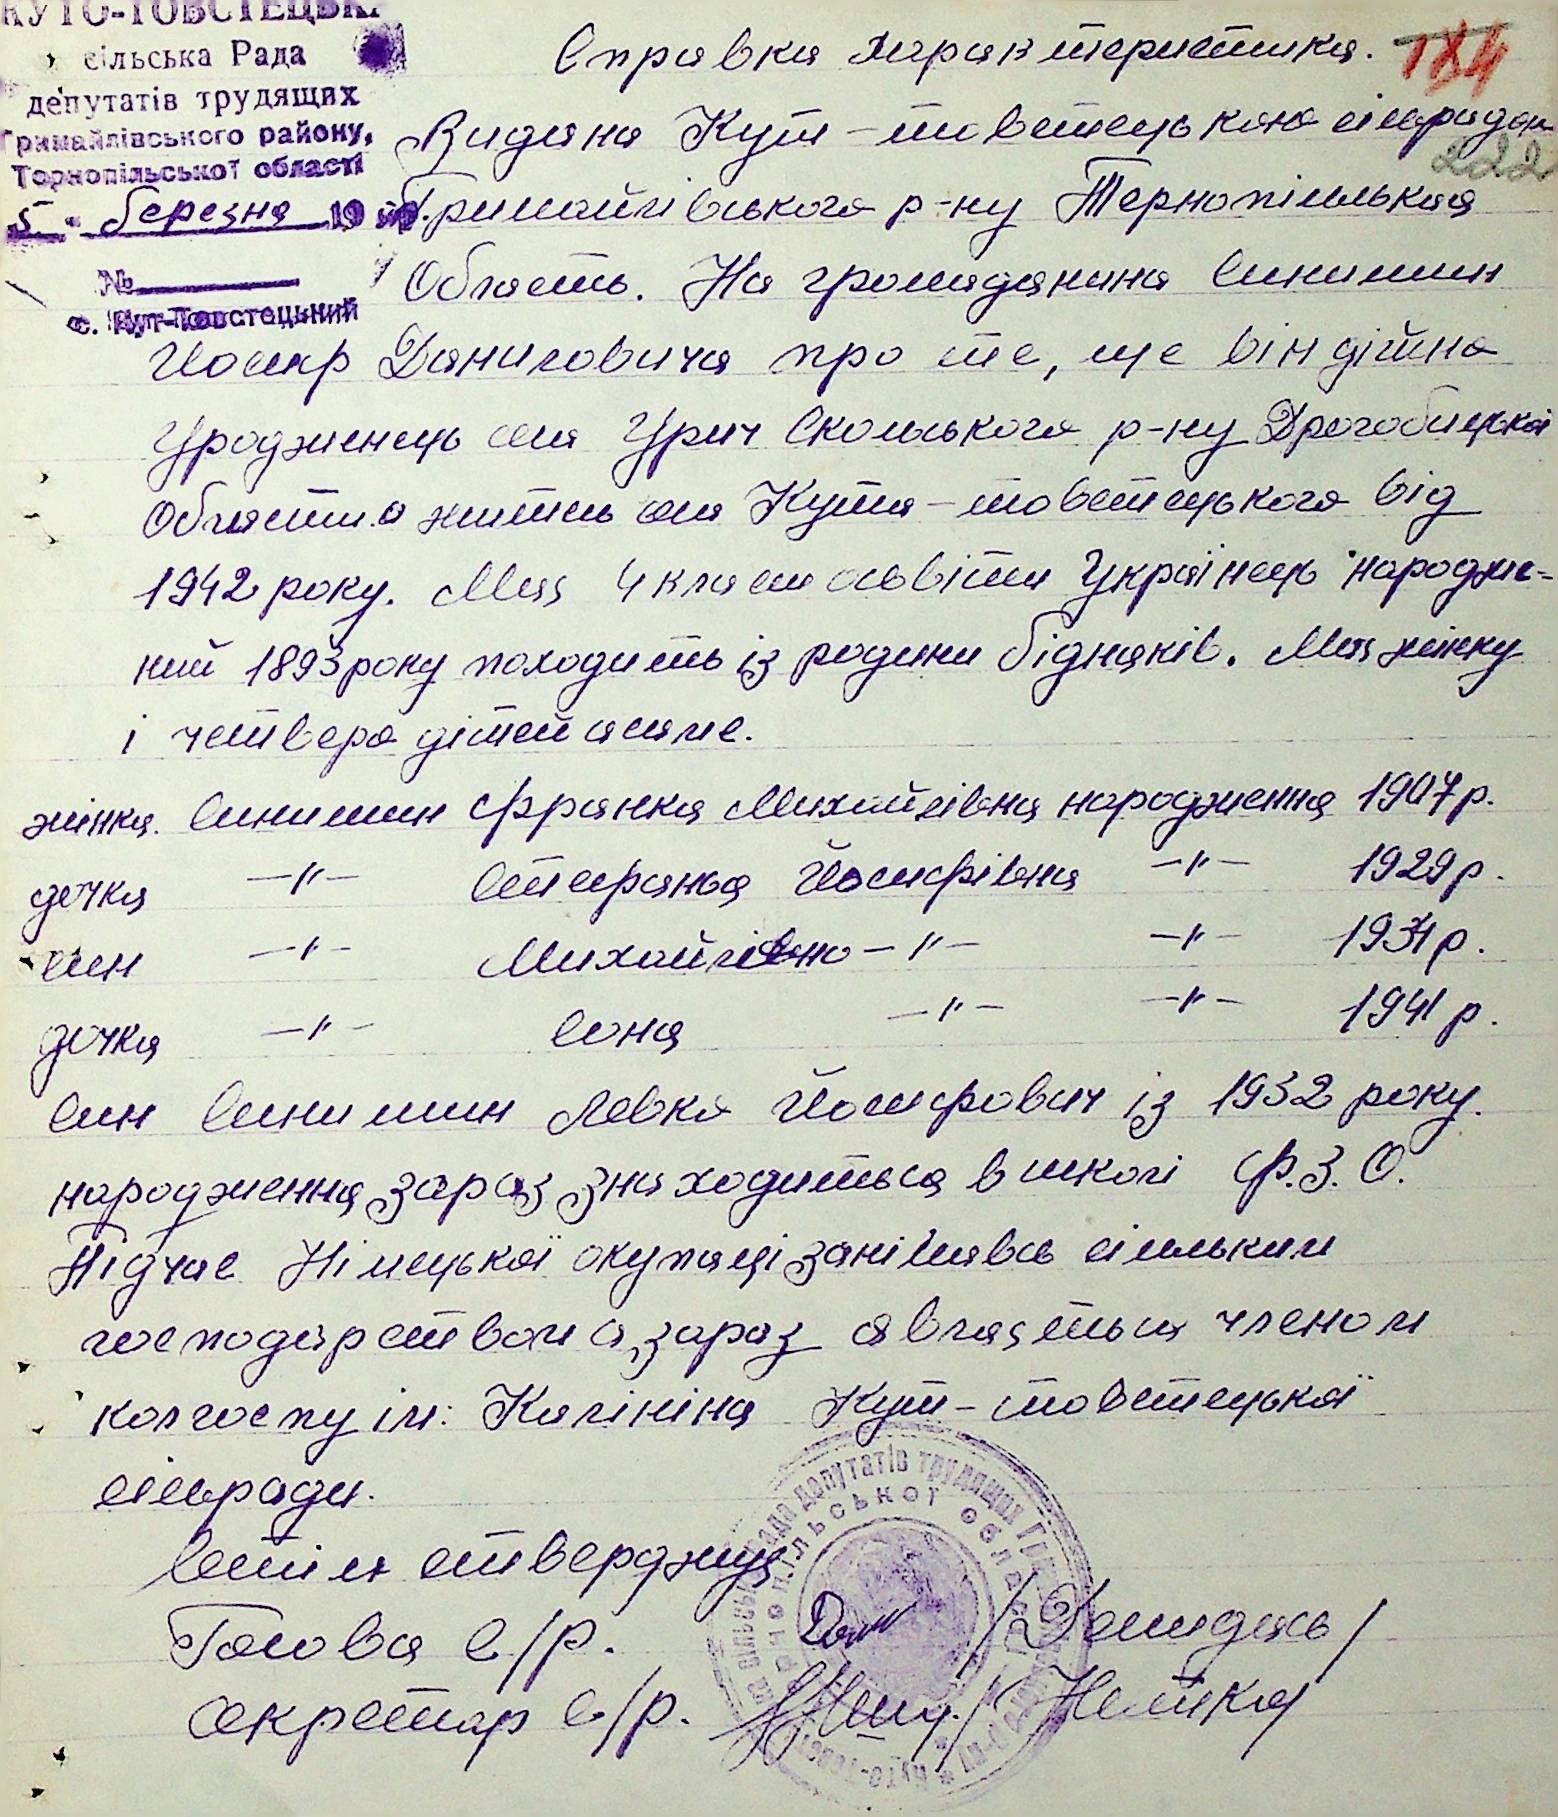 КУТО-ТОВСТЕЦЬК
сільська Рада
депутатів трудящих
Гримайлівського району,
Тернопільської області
5 " березня 19
№
с. Кут-Товстецький
184
222
Справка характеристика.
Видана Кут-товстецькою сільрадою
Гримайлівського р-ну Тернопільська
Область. На громадянина Синишин
Йосип Даниловича про те, що він дійсно
уродженець села Урич Скольського р-ну Дрогобицької
Области а житель села Кута-товстецького від
1942 року. Має 4 класи освіти Українець народже-
ний 1893 року походить із родини бідняків. Має жінку
і четверо дітей а саме.
жінка. Синишин Франка Михайлівна народження 1907 р.
дочка —"— Стефанья Йосифівна —"— 1929 р.
син —"— Михайло —"— —"— 1934 р.
дочка —"— Соня —"— —"— 1941 р.
син Синишин Левко Йосифович із 1932 року.
народження зараз знаходиться в школі Ф.З.О.
Підчас Німецької окупаці занімавсь сільським
господарством а зараз являється членом
колгоспу ім: Калініна Кут-товстецької
сільради.
Сстім стверджує
Голова с/р. /Демидась/
секретар с/р.